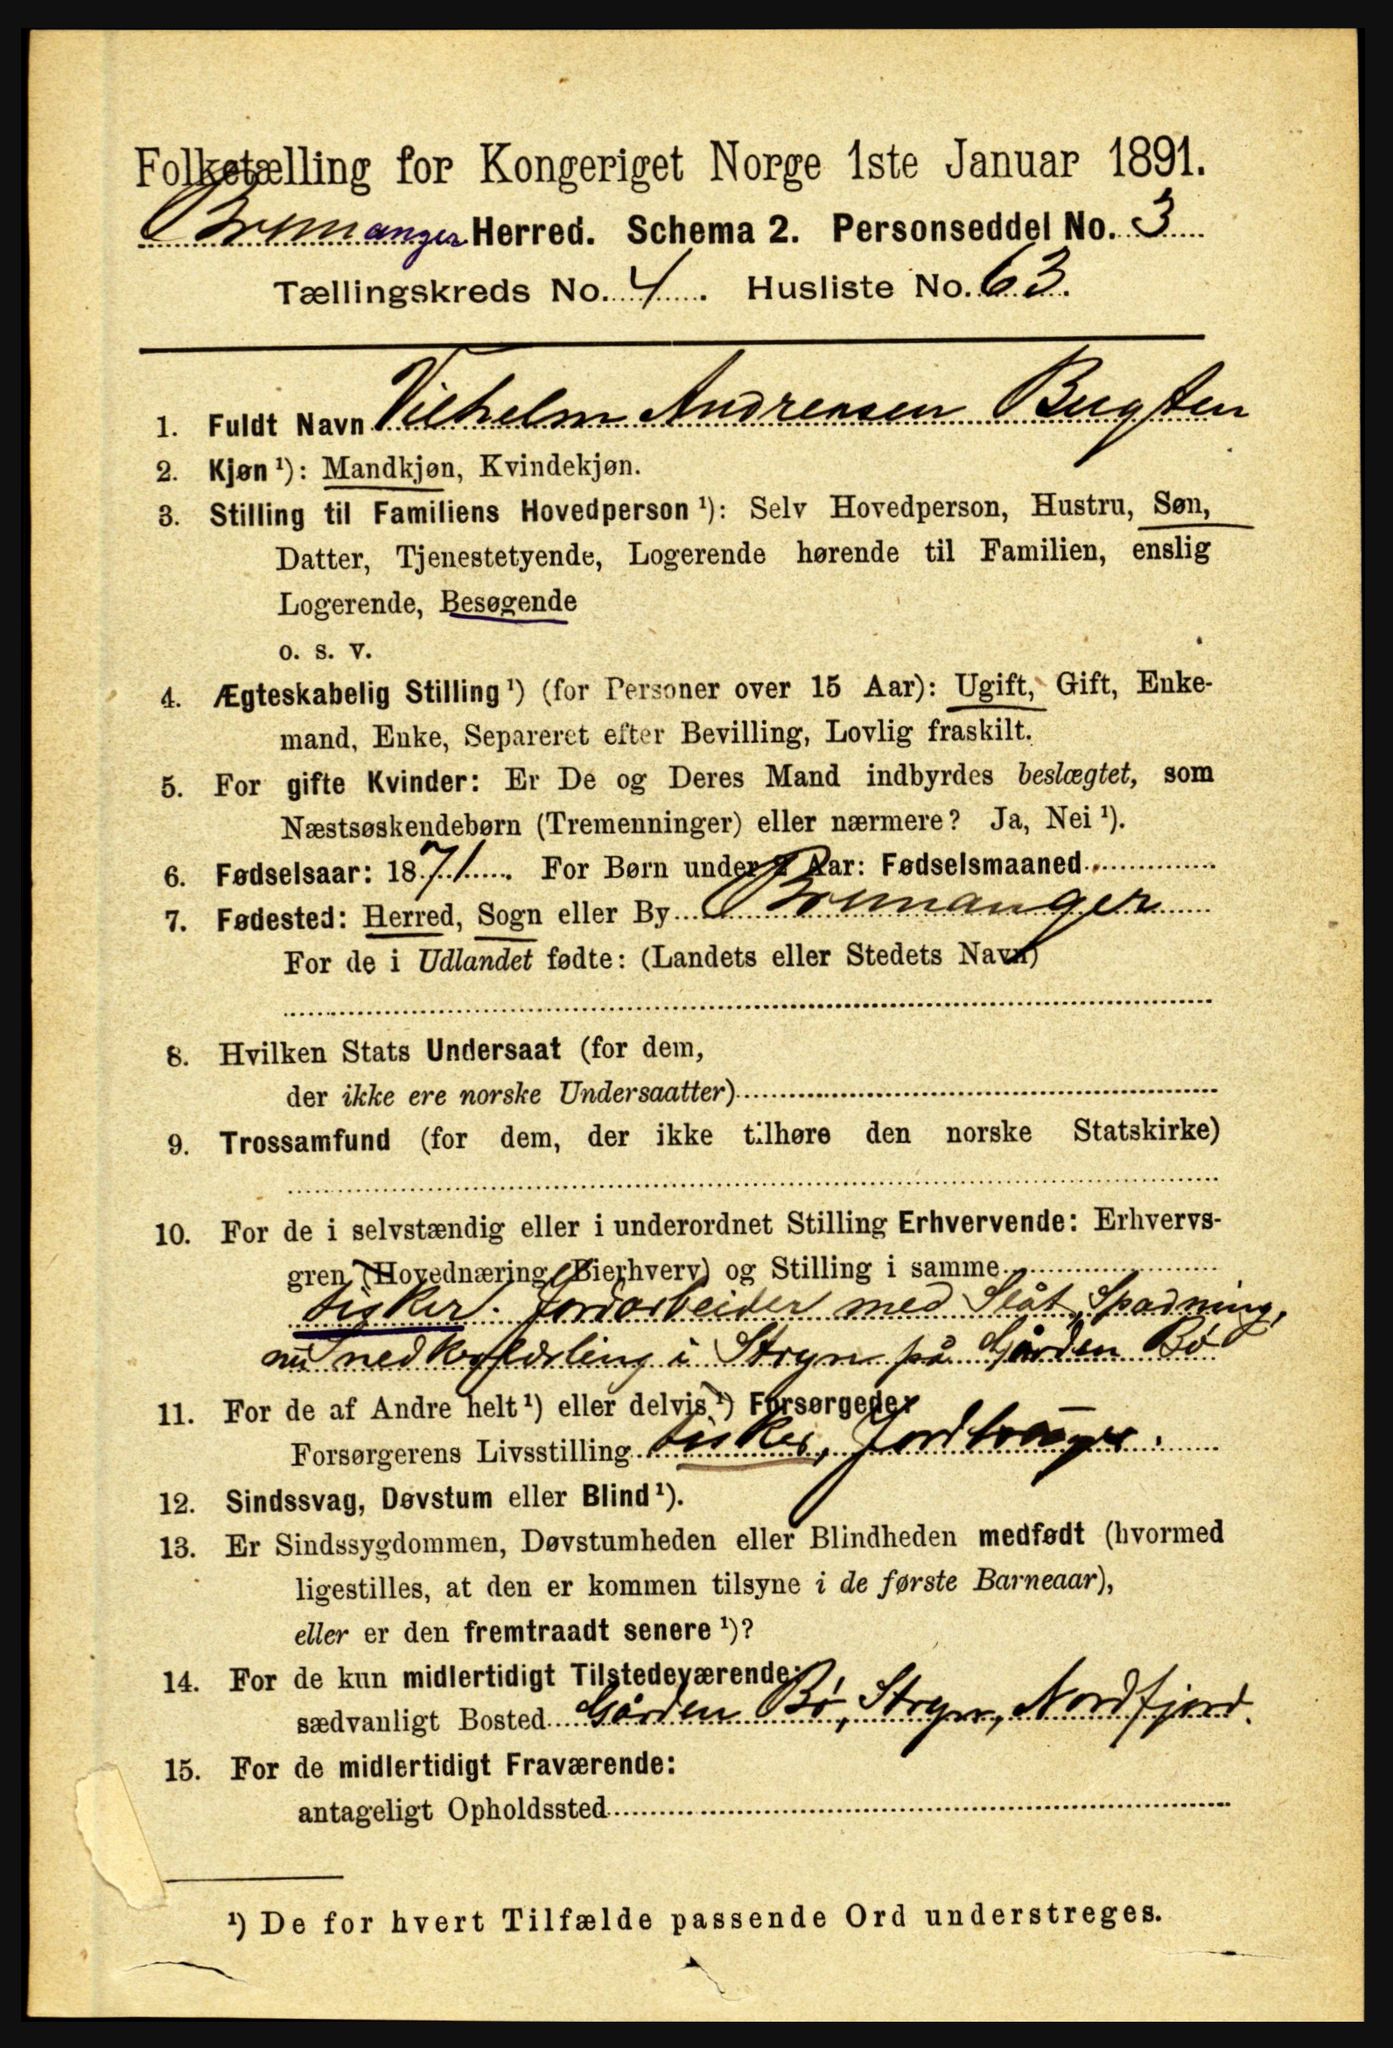 Folketælling for Kongeriget Norge 1ste Januar 1891.
Bremanger Herred. Schema 2. Personseddel No. 3
Tællingskreds No. 4. Husliste No. 63.
1. Fuldt Navn Vilhelm Andreasen Bugten
2. Kjøn ¹): Mandkjøn, Kvindekjøn.
3. Stilling til Familiens Hovedperson ¹): Selv Hovedperson, Hustru, Søn,
Datter, Tjenestetyende, Logerende hørende til Familien, enslig
Logerende, Besøgende
o. s. v.
4. Ægteskabelig Stilling ¹) (for Personer over 15 Aar): Ugift, Gift, Enke-
mand, Enke, Separeret efter Bevilling, Lovlig fraskilt.
5. For gifte Kvinder: Er De og Deres Mand indbyrdes beslægtet, som
Næstsøskendebørn (Tremenninger) eller nærmere? Ja, Nei ¹).
6. Fødselsaar: 1871. For Børn under Aar: Fødselsmaaned
7. Fødested: Herred, Sogn eller By Bremanger
For de i Udlandet fødte: (Landets eller Stedets Navn)
8. Hvilken Stats Undersaat (for dem,
der ikke ere norske Undersaatter)
9. Trossamfund (for dem, der ikke tilhøre den norske Statskirke)
10. For de i selvstændig eller i underordnet Stilling Erhvervende: Erhvervs-
gren (Hovednæring, Bierhverv) og Stilling i samme
Fisker. Jordarbeider med Slåt, Spadning,
nu Snedkerlærling i Stryn på Gården Bø
11. For de af Andre helt ¹) eller delvis ¹) Forsørgede:
Forsørgerens Livsstilling Fisker, Jordbruger.
12. Sindssvag, Døvstum eller Blind ¹).
13. Er Sindssygdommen, Døvstumheden eller Blindheden medfødt (hvormed
ligestilles, at den er kommen tilsyne i de første Barneaar),
eller er den fremtraadt senere ¹)?
14. For de kun midlertidigt Tilstedeværende:
sædvanligt Bosted Gården Bø, Stryn, Nordfjord.
15. For de midlertidigt Fraværende:
antageligt Opholdssted
¹) De for hvert Tilfælde passende Ord understreges.